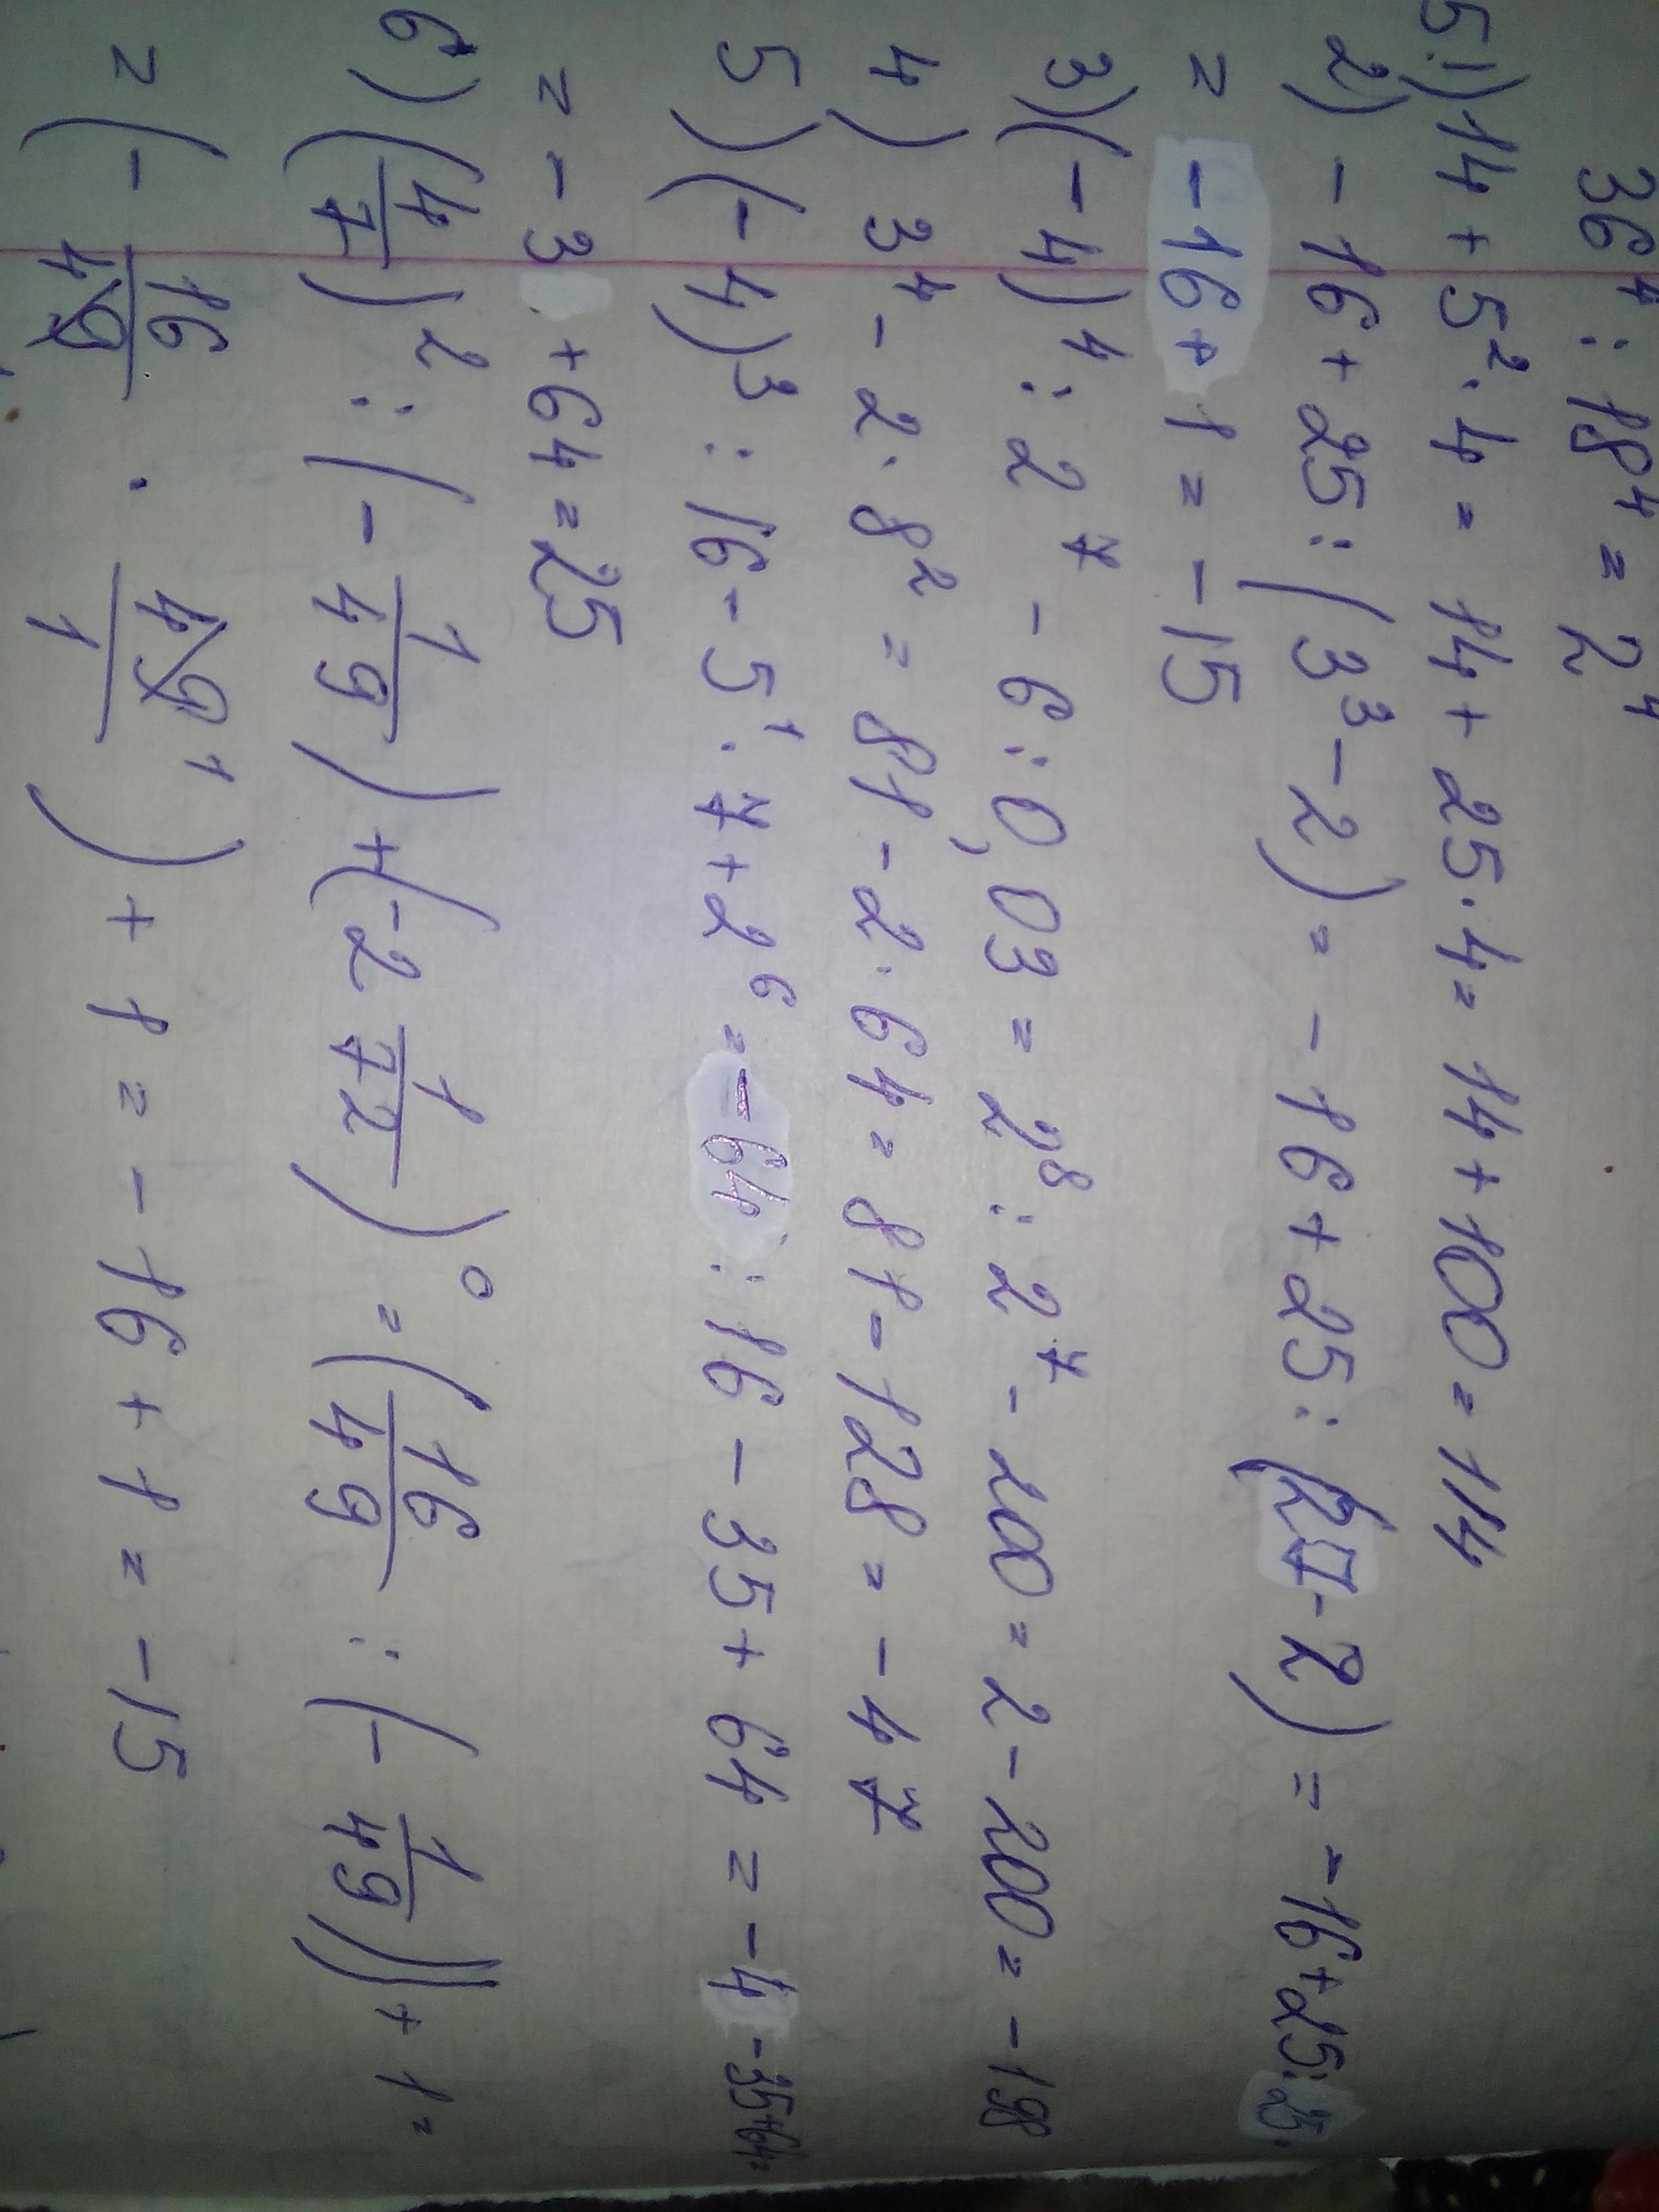 36⁴ : 18⁴ = 2⁴
5. 1) 14 + 5² · 4 = 14 + 25 · 4 = 14 + 100 = 114
2) - 16 + 25 : (3³ - 2) = - 16 + 25 : (27 - 2) = - 16 + 25 : 25 =
= - 16 + 1 = - 15
3) (- 4)⁴ : 2⁷ - 6 : 0,03 = 2⁸ : 2⁷ - 200 = 2 - 200 = - 198
4) 3⁴ - 2 · 8² = 81 - 2 · 64 = 81 - 128 = - 47
5) (- 4)³ : 16 - 5¹ · 7 + 2⁶ = - 64 : 16 - 35 + 64 = - 4 - 35 + 64 =
= - 3 + 64 = 25
6) (4/7)² : (- 1/49) + (- 2 1/72)⁰ = (16/49 : (- 1/49)) + 1 =
= (- 16/49 · 49¹/1) + 1 = - 16 + 1 = - 15